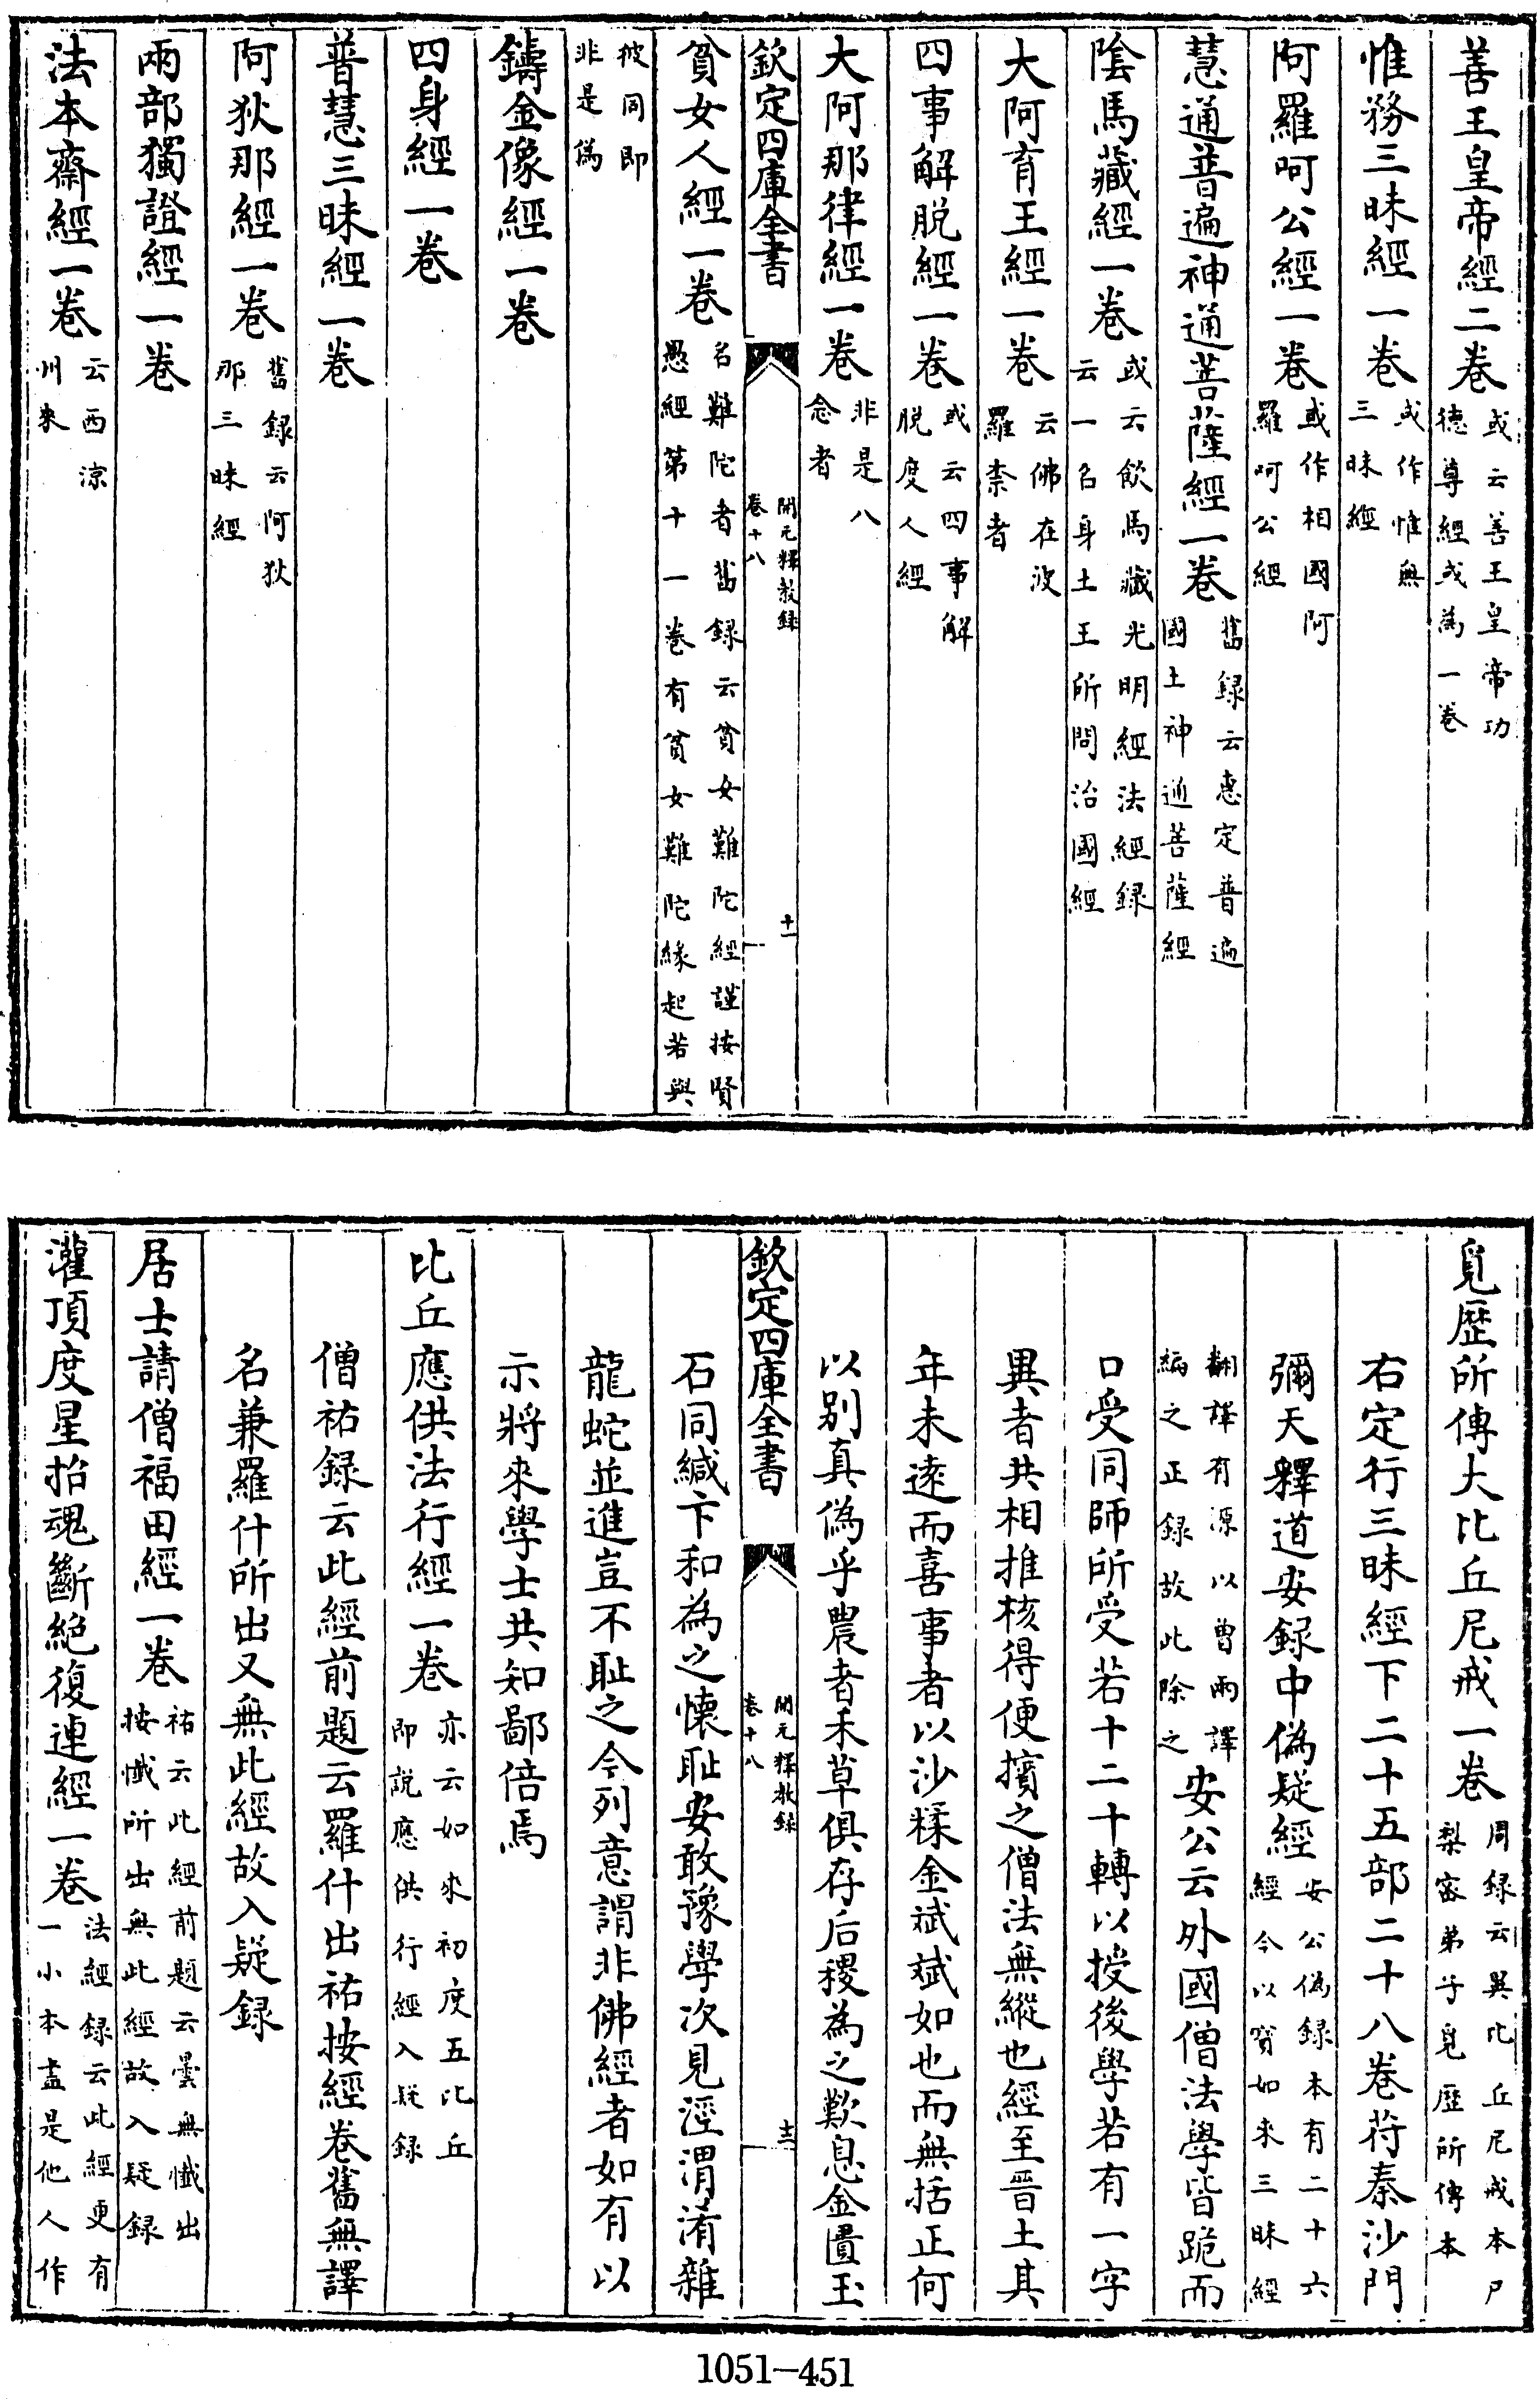 善王皇帝經二卷或云善王皇帝功德尊經或為一卷
惟務三昧經一卷或作惟無三昧經
阿羅呵公經一卷或作相國阿羅呵公經
慧通普遍神通菩薩經一卷舊録云惠定普遍國土神通菩薩經
陰馬藏經一卷或云飲馬藏光明經法經録云一名身土王所問治國經
大阿育王經一卷云佛在波羅柰者
四事解脱經一卷或云四事解脱度人經
大阿那律經一卷非是八念者
欽定四庫全書 開元釋教録卷十八 十一
貧女人經一卷名難陀者舊録云貧女難陀經謹按賢愚經第十一卷有貧女難陀緣起若與
彼同即非是偽
鑄金像經一卷
四身經一卷
普慧三昧經一卷
阿狄那經一卷舊録云阿狄那三昧經
兩部獨證經一卷
法本齋經一卷云西涼州來
覓歴所傳大比丘尼戒一卷周録云與比丘尼戒本尸梨蜜弟子覓歴所傳本
右定行三昧經下二十五部二十八卷苻秦沙門
彌天釋道安録中偽疑經安公偽録本有二十六經今以寳如來三昧經
翻譯有源以曽兩譯編之正録故此除之安公云外國僧法學皆跪而
口受同師所受若十二十轉以授後學若有一字
異者共相推核得便擯之僧法無縱也經至晋土其
年未遠而喜事者以沙糅金斌斌如也而無括正何
以别真偽乎農者禾草俱存后稷為之歎息金匱玉
欽定四庫全書 開元釋教録卷十八 十二
石同緘卞和為之懷耻安敢豫學次見涇渭淆雜
龍蛇並進豈不耻之今列意謂非佛經者如有以
示將來學士共知鄙倍焉
比丘應供法行經一卷亦云如來初度五比丘即説應供行經入疑録
僧祐録云此經前題云羅什出祐按經卷舊無譯
名兼羅什所出又無此經故入疑録
居士請僧福田經一卷祐云此經前題云曇無懺出按懺所出無此經故入疑録
灌頂度星招魂斷絶復連經一卷法經録云此經更有一小本盖是他人作
1051-451